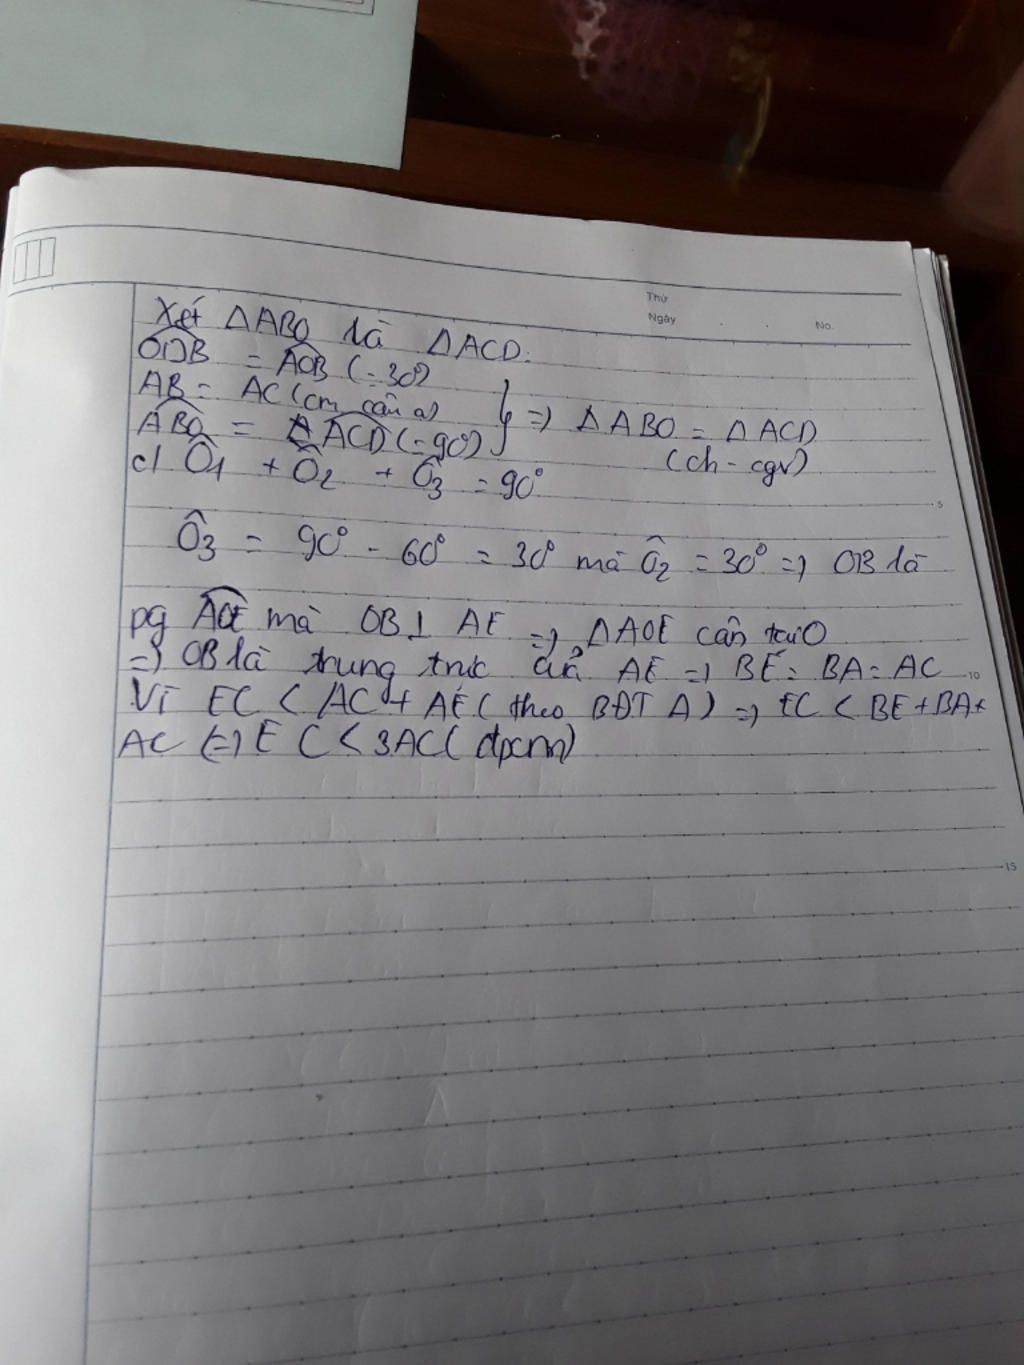 Thứ
Ngày . . No.
Xét ΔABO là ΔACD.
ODB = AOB (=30°)
AB = AC (cm câu a)
ABO = ACD (=90°) } => ΔABO = ΔACD
(ch - cgv)
c) Ô1 + Ô2 + Ô3 = 90°
5
Ô3 = 90° - 60° = 30° mà Ô2 = 30° => OB là
pg AOE mà OB ⊥ AE => ΔAOE cân tại O
=> OB là trung trực của AE => BE = BA = AC
10
Vì EC < AC + AE (theo BĐT Δ) => EC < BE + BA +
AC => EC < 3AC (đpcm)
15